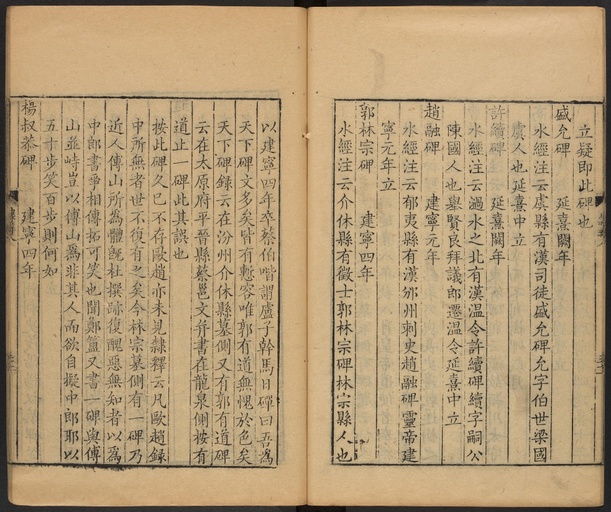 立疑即此碑也
盛允碑　延熹闕年
水經注云虞縣有漢司徒盛允碑允字伯世梁國
虞人也延熹中立
許續碑　延熹闕年
水經注云過水之北有漢溫令許續碑續字嗣公
陳國人也舉賢良拜議郎遷溫令延熹中立
趙融碑　建寧元年
水經注云郁夷縣有漢邠州刺史趙融碑靈帝建
寧元年立
郭林宗碑　建寧四年
水經注云介休縣有徵士郭林宗碑林宗縣人也
以建寧四年卒蔡伯喈謂盧子幹馬日磾曰吾為
天下碑文多矣皆有慙容唯郭有道無愧於色矣
天下碑錄云在汾州介休縣墓側又有郭有道碑
云在太原府平晉縣蔡邕文并書在龍泉側按有
道止一碑此其誤也
按此碑久已不存歐趙亦未見隸釋云凡歐趙錄
中所無者世不復有之矣今林宗墓側有一碑乃
近人傅山所為體既杜撰跡復醜惡無知者以為
中郎書爭相傳拓可笑也聞鄭簠又書一碑與傅
山並峙豈以傅山為非其人而欲自擬中郎耶以
五十步笑百步則何如
楊叔恭碑　建寧四年